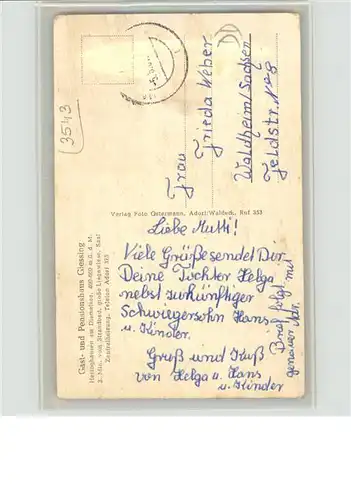 3543
Frau
Frieda Weber
Waldheim/Sachsen
Feldstr. No 8
Verlag Foto Ostermann, Adorf/Waldeck, Ruf 353
Gast- und Pensionshaus Giessing
Heringhausen am Diemelsee, 400-600 m ü. d. M.
2 Min. vom Strandbad, große Liegewiese, Saal
Zentralheizung, Telefon Adorf 323
Liebe Mutti!
Viele Grüße sendet Dir
Deine Tochter Helga
nebst zukünftiger
Schwiegersohn Hans
u. Kinder.
Gruß und Kuß
von Helga u. Hans
u. Kinder
Brief folgt mit
genauer